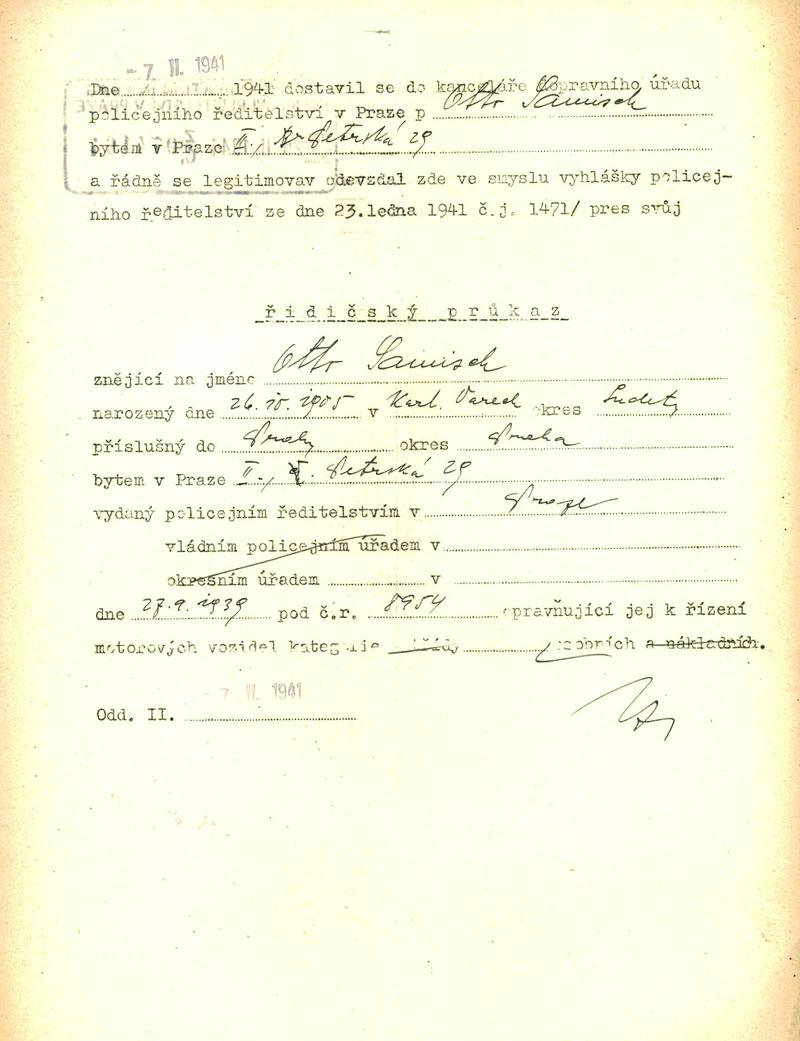 - 7. II. 1941
Dne 1941 dostavil se do kanceláře dopravního úřadu
policejního ředitelství v Praze p Otto Samisch
bytem v Praze II., Petrská 29
a řádně se legitimovav odevzdal zde ve smyslu vyhlášky policej-
ního ředitelství ze dne 23.ledna 1941 č.j. 1471/ pres svůj
řidičský průkaz
znějící na jméno Otto Samisch
narozený dne 26. 1905 v Karl. Varech okres Sudety
příslušný do Prahy okres Praha
bytem v Praze II., Petrská 29
vydaný policejním ředitelstvím v Praze
vládním policejním úřadem v
okresním úřadem v
dne 27.9.1939 pod č.r. 8954 opravňující jej k řízení
motorových vozidel kategorie osobních a nákladních.
7 II. 1941
Odd. II.